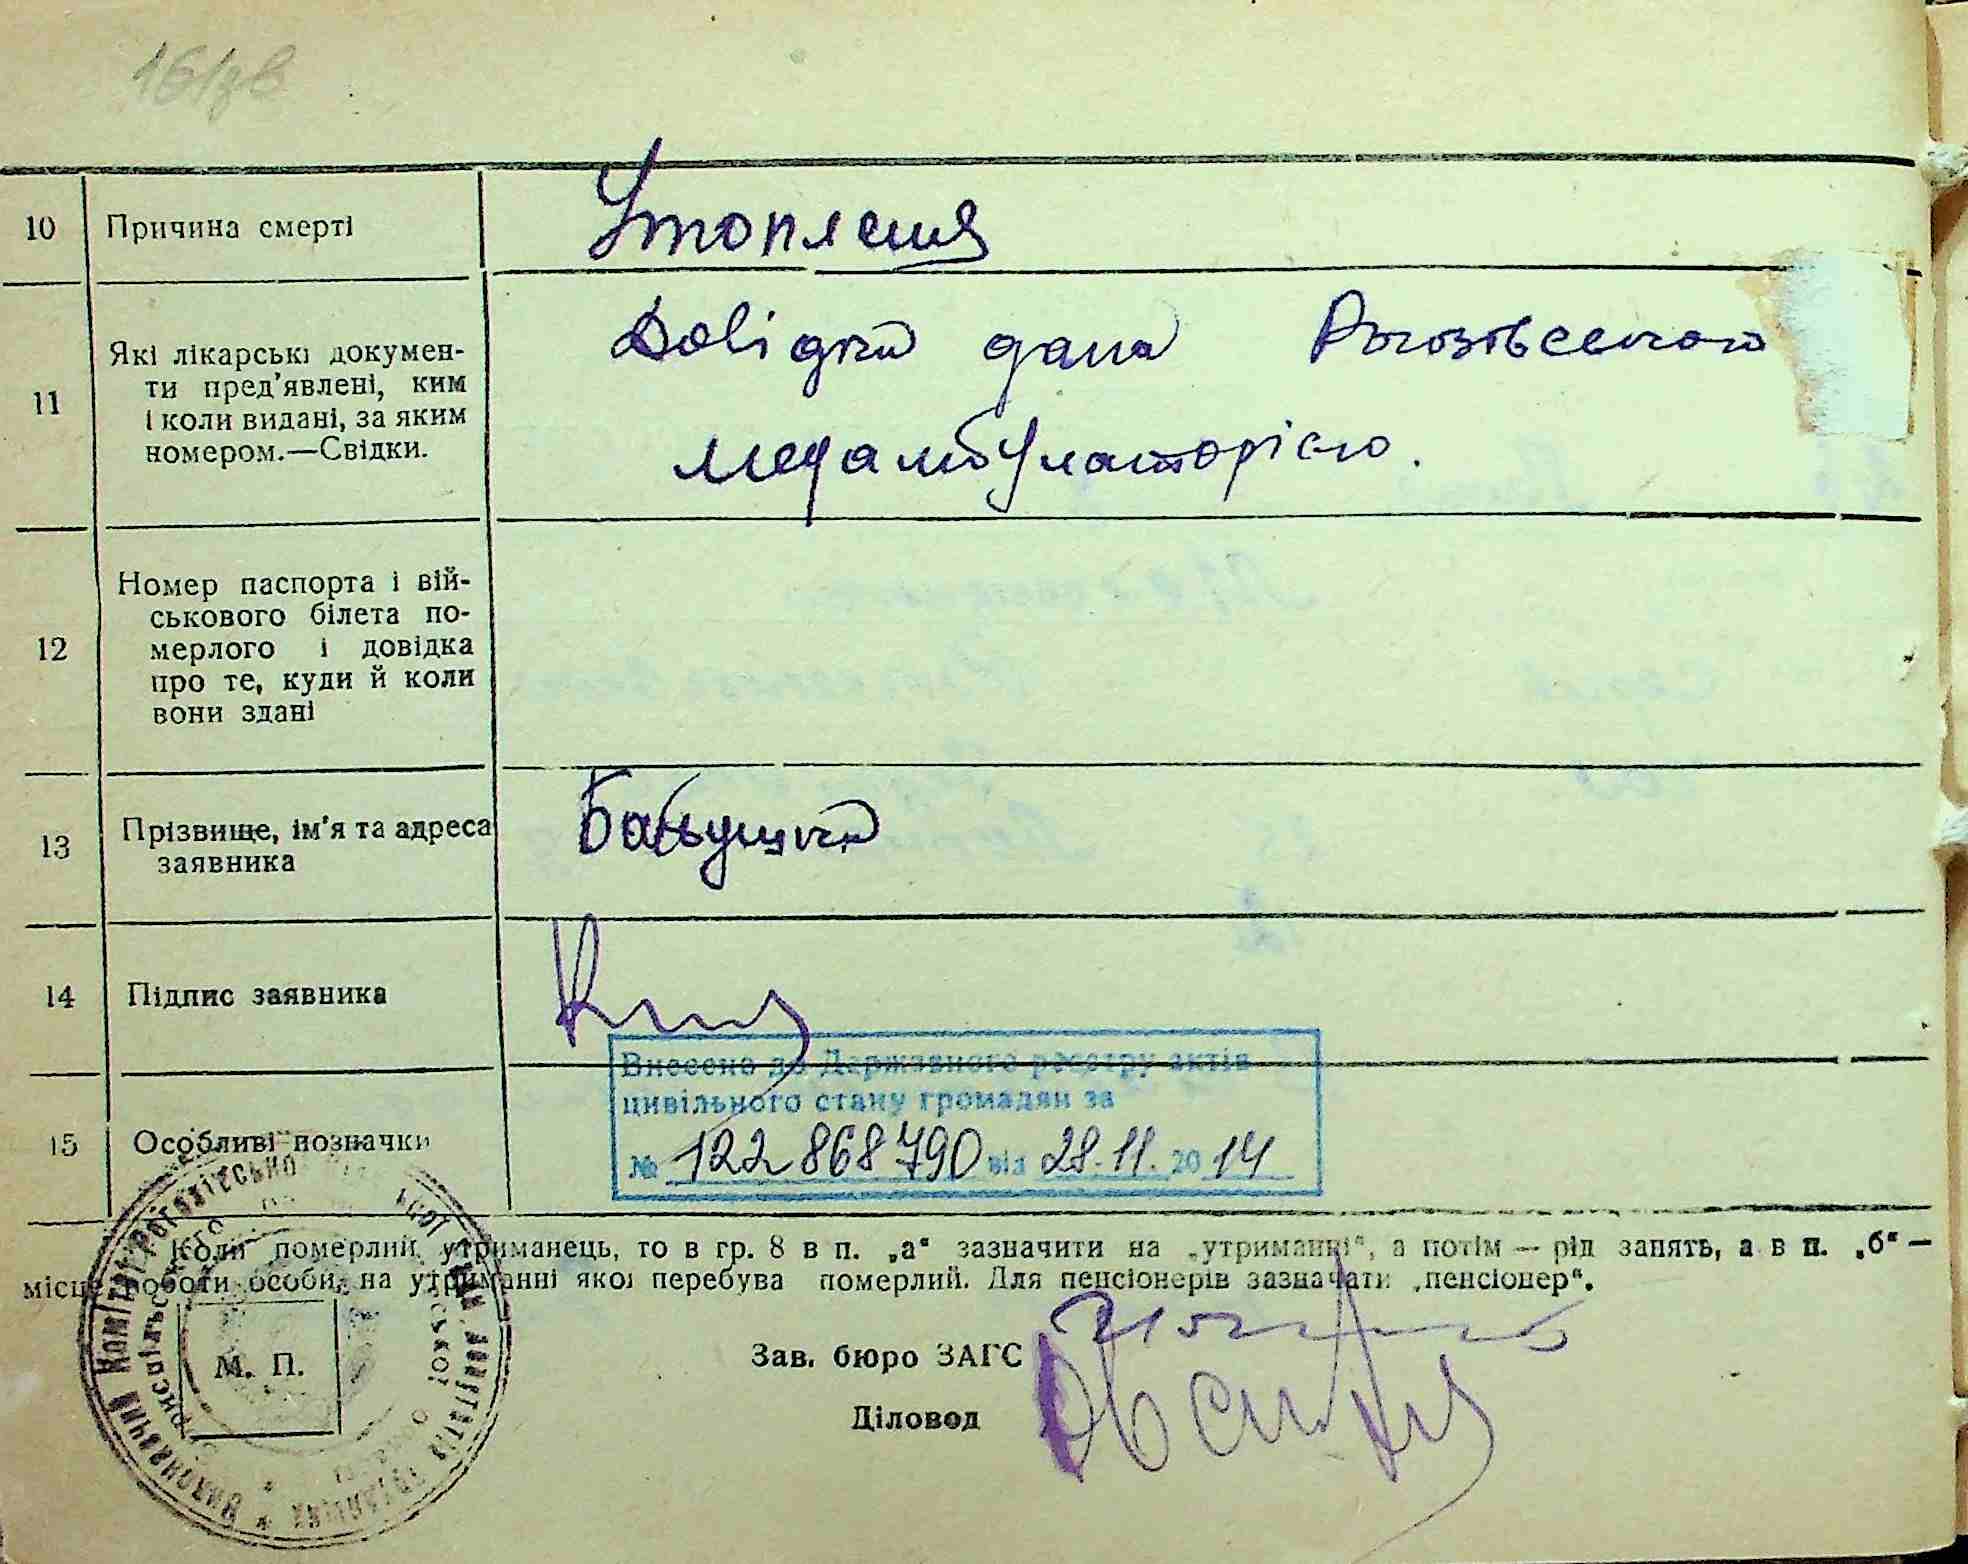 10 Причина смерті Утоплення
11 Які лікарські докумен-
ти пред'явлені, ким
і коли видані, за яким
номером.—Свідки.
Довідка дана Рогозівською
медамбулаторією.
12 Номер паспорта і вій-
ськового білета по-
мерлого і довідка
про те, куди й коли
вони здані
13 Прізвище, ім'я та адреса
заявника
14 Підпис заявника
Внесено до Державного реєстру актів
цивільного стану громадян за
№ 122868790 від 28.11.2014
15 Особливі позначки
Коли померлий утриманець, то в гр. 8 в п. „а“ зазначити на „утриманні“, а потім — рід занять, а в п. „б“ —
місце роботи особи, на утриманні якої перебува померлий. Для пенсіонерів зазначати „пенсіонер“.
М. П.
Зав. бюро ЗАГС
Діловод